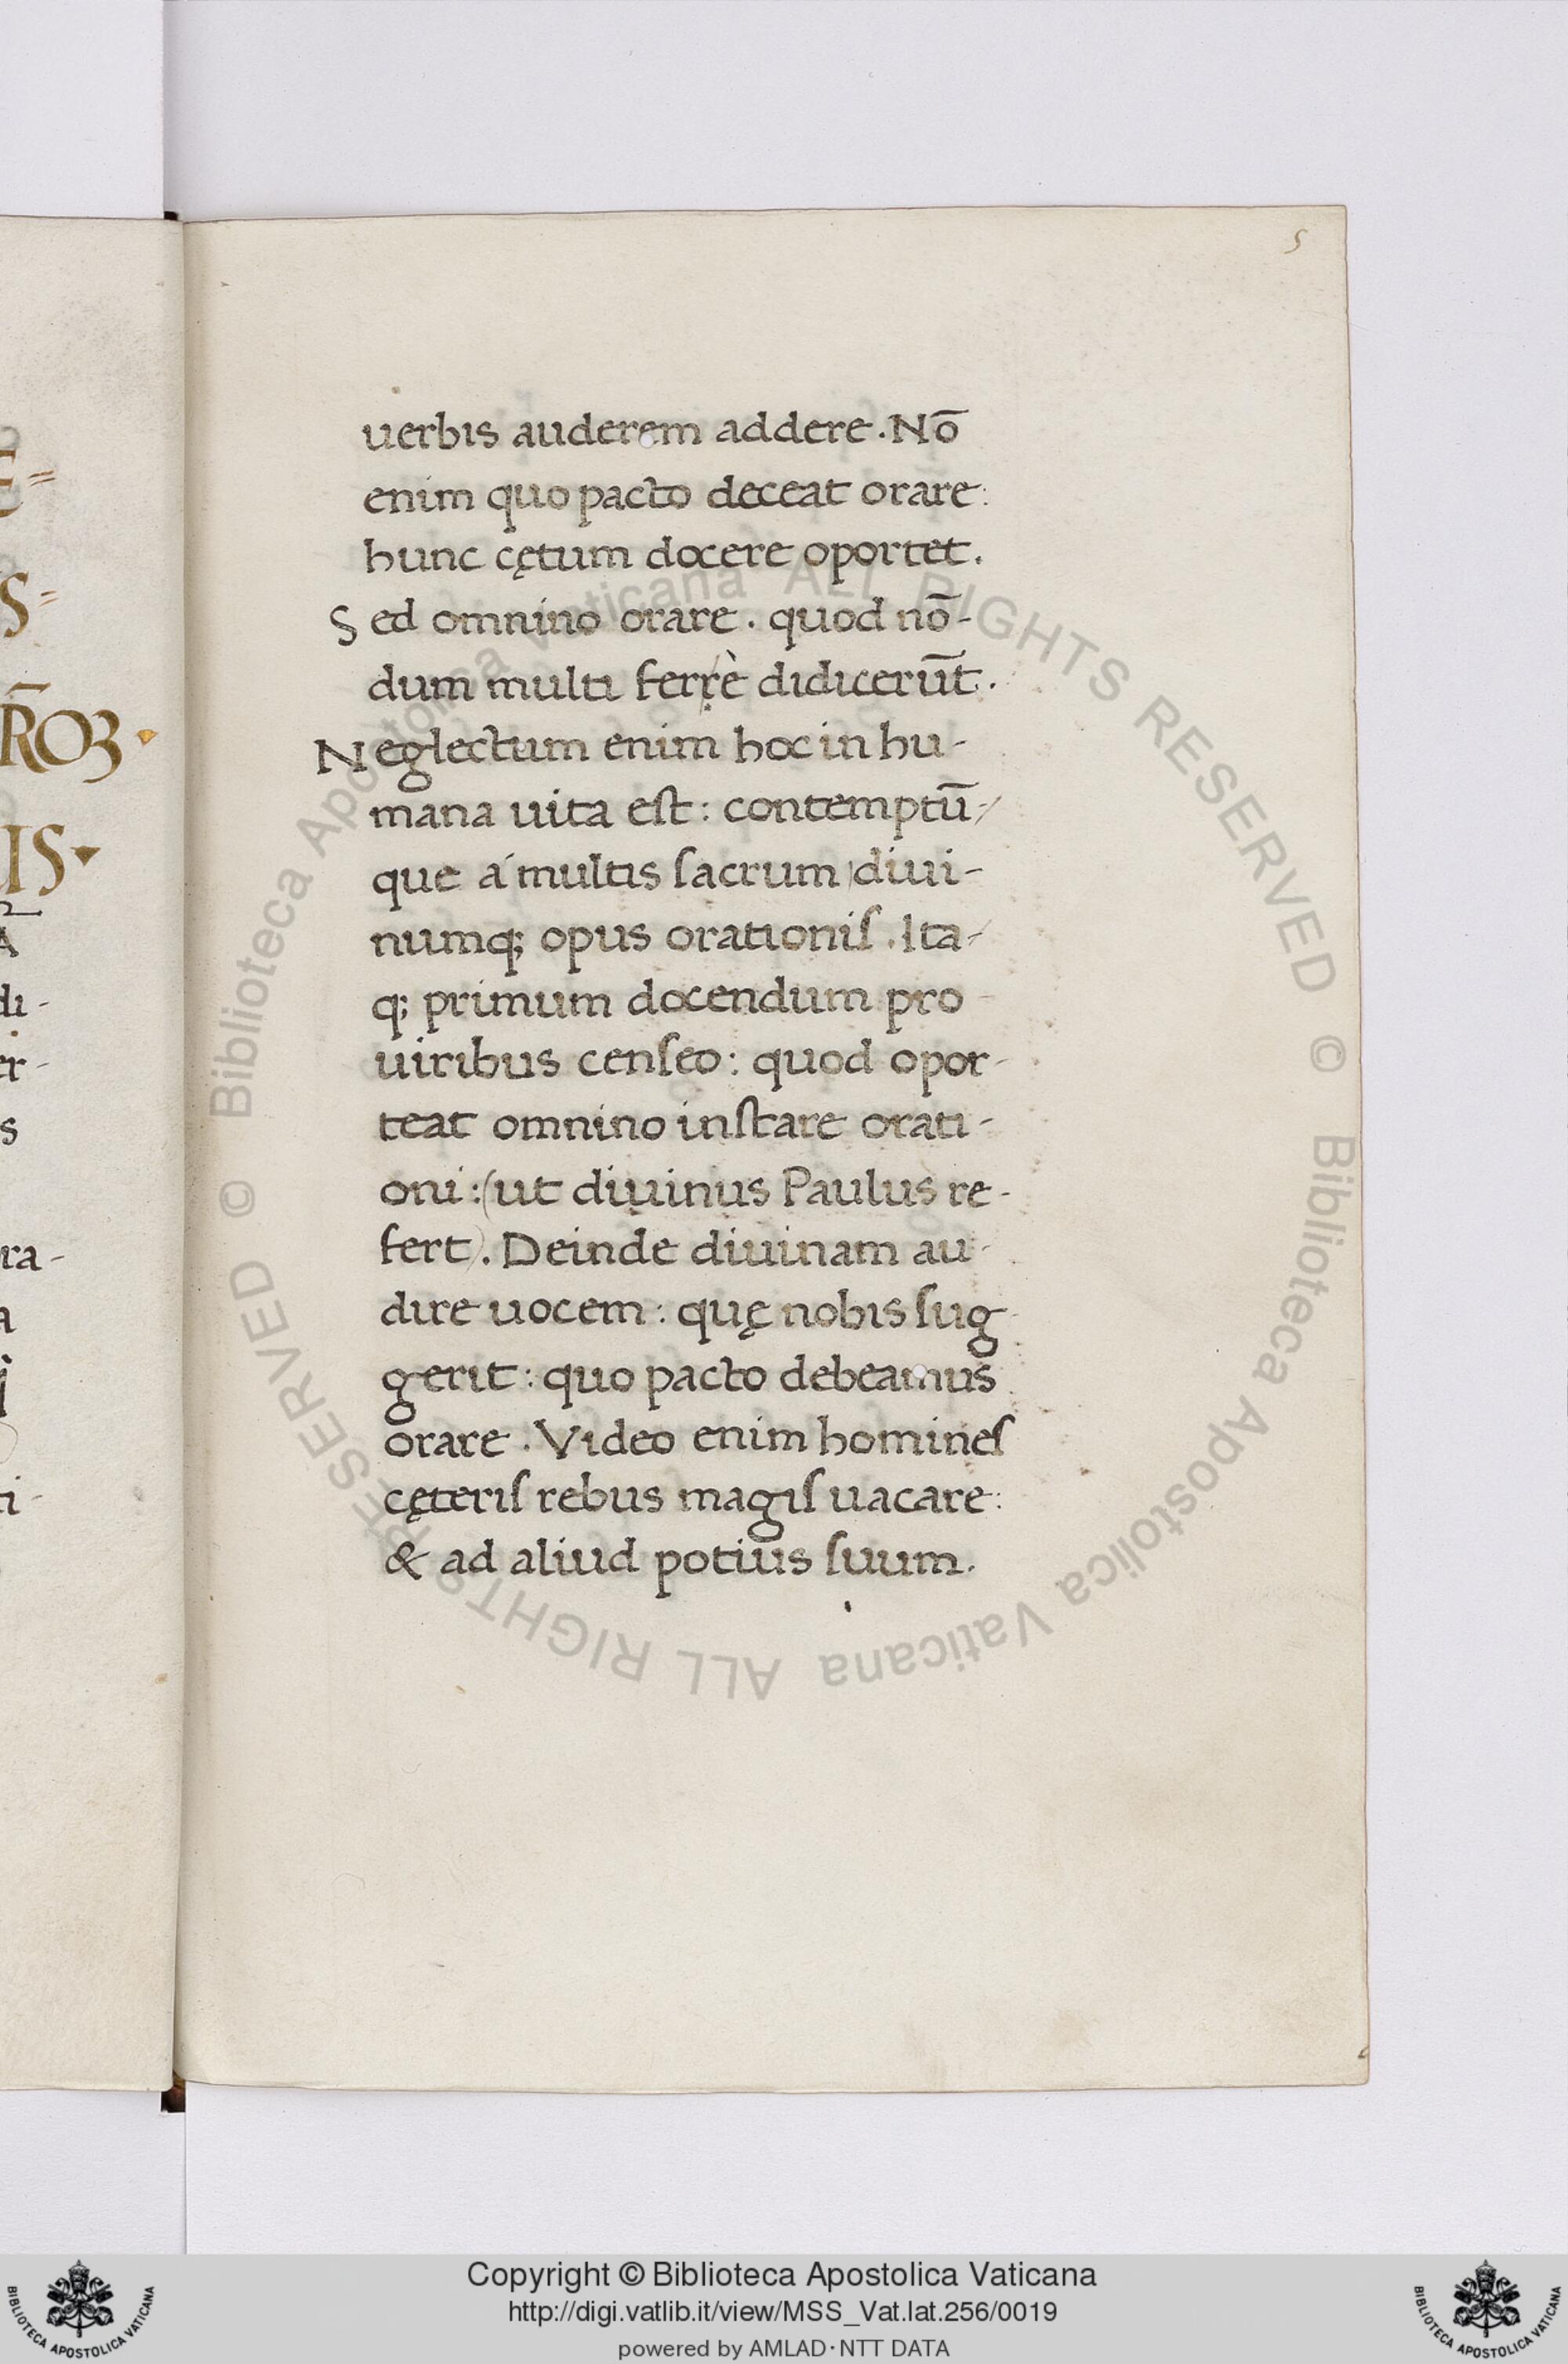 5
uerbis auderem addere. Nō
enim quo pacto deceat orare:
hunc cętum docere oportet.
Sed omnino orare. quod nō-
dum multi ferrè didicerūt.
Neglectum enim hoc in hu-
mana uita eſt: contemptū-
que á multis ſacrum diui-
numq; opus orationiſ. Ita-
q; primum docendum pro
uiribus cenſeo: quod opor-
teat omnino inſtare orati-
oni: (ut diuinus Paulus re-
fert). Deinde diuinam au-
dire uocem: quę nobis ſug-
gerit: quo pacto debeamus
orare. Video enim homineſ
cęteriſ rebus magiſ uacare:
& ad aliud potius ſuum.
E=
S=
R̄OꝜ.
IS
A
di-
er-
s
ra-
a
ti-
© Biblioteca Apostolica Vaticana ALL RIGHTS RESERVED © Biblioteca Apostolica Vaticana ALL RIGHTS RESERVED
Copyright © Biblioteca Apostolica Vaticana
http://digi.vatlib.it/view/MSS_Vat.lat.256/0019
powered by AMLAD·NTT DATA
BIBLIOTECA APOSTOLICA VATICANA
BIBLIOTECA APOSTOLICA VATICANA